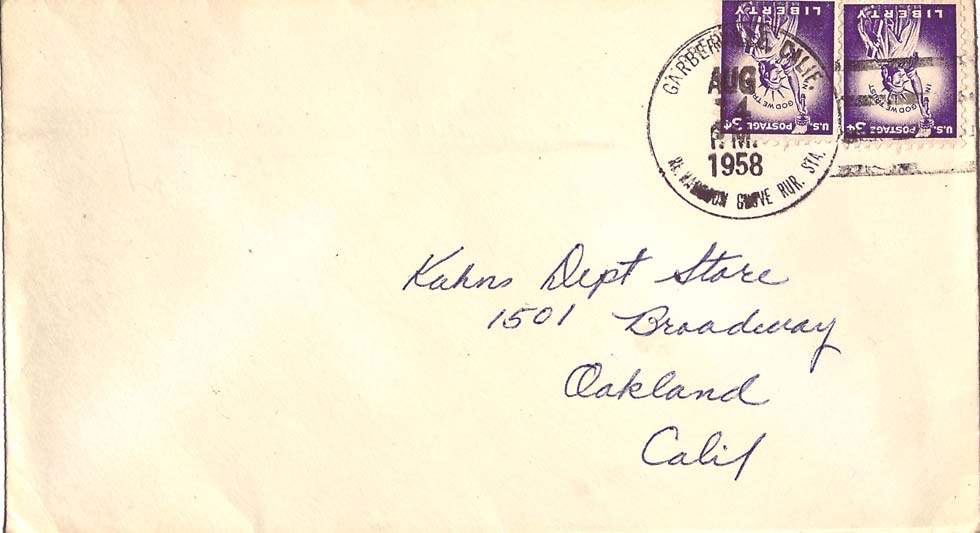 GARBERVILLE, CALIF.
AUG
P.M.
1958
GROVE RUR. STA.
LIBERTY
IN GOD WE TRUST
U.S. POSTAGE 3¢
LIBERTY
IN GOD WE TRUST
U.S. POSTAGE 3¢
Kahns Dept Store
1501 Broadway
Oakland
Calif